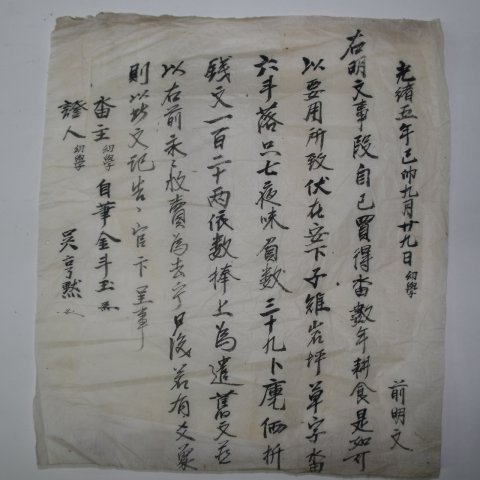 光緖五年己卯九月廿九日 幼學 前明文
右明文事段自己買得畓數年耕食是如可
以要用所致伏在安下子雉岩坪單字畓
六斗落只七夜味負數三十九卜庫価折
錢文一百二十兩依數捧上爲遣舊文並
以右前永〻放賣為去乎日後若有爻象
則以此文記告〻官卞呈事
畓主 幼學 自筆金斗玉
證人 幼學 吳亨黙